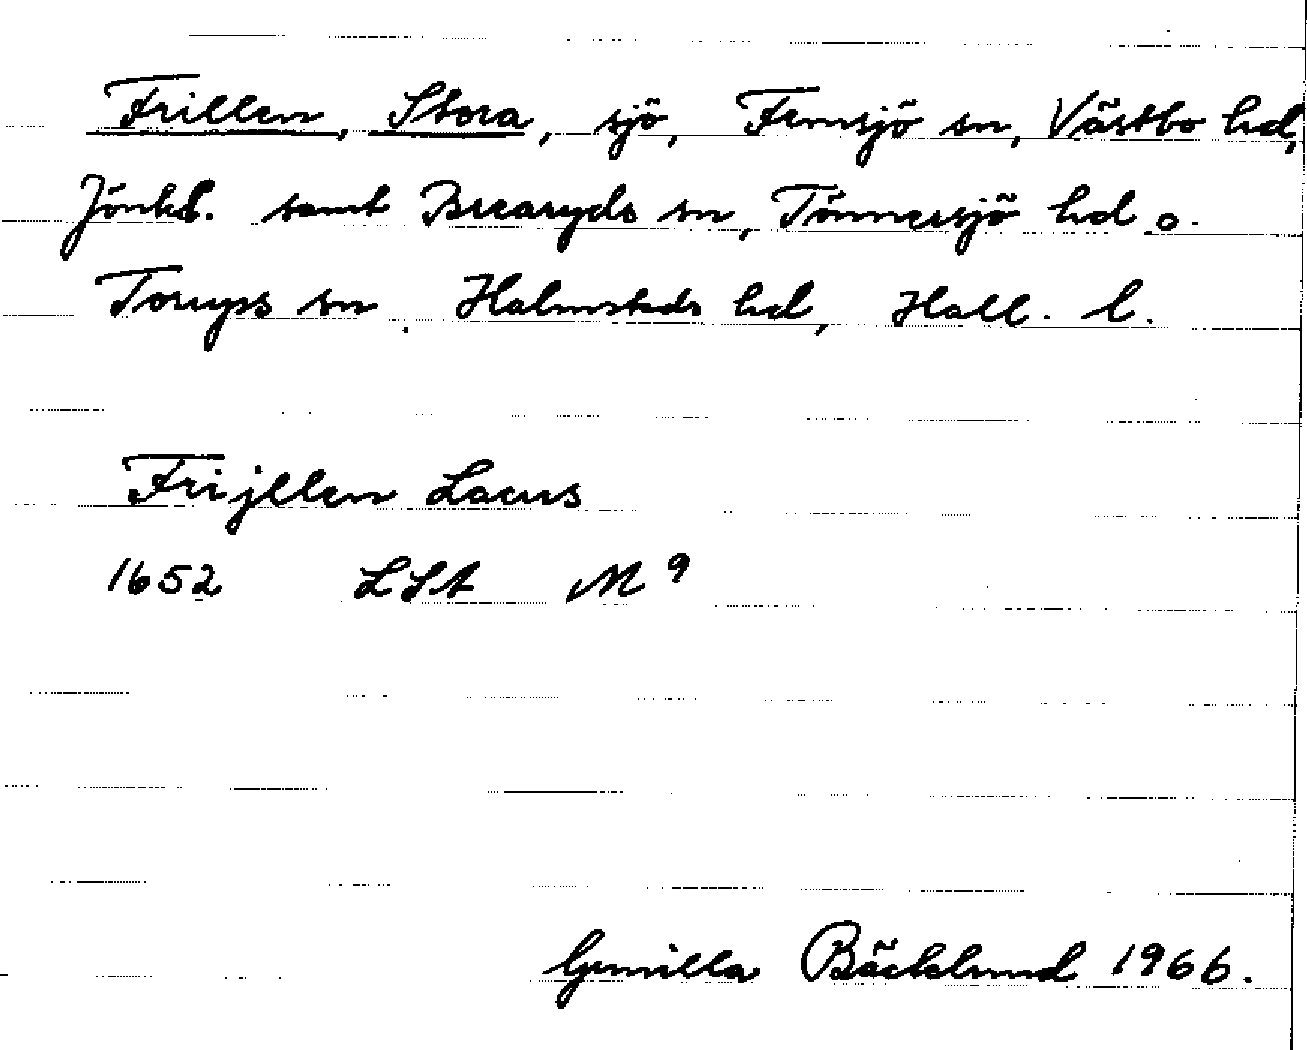 Frillen, Stora, sjö, Femsjö sn, Västbo hd,
Jönk.l. samt Breareds sn, Tönnersjö hd o.
Torups sn, Halmstads hd, Hall. l.
Frijllen Lacus
1652 LSA M 9
Gunilla Bäcklund 1966.